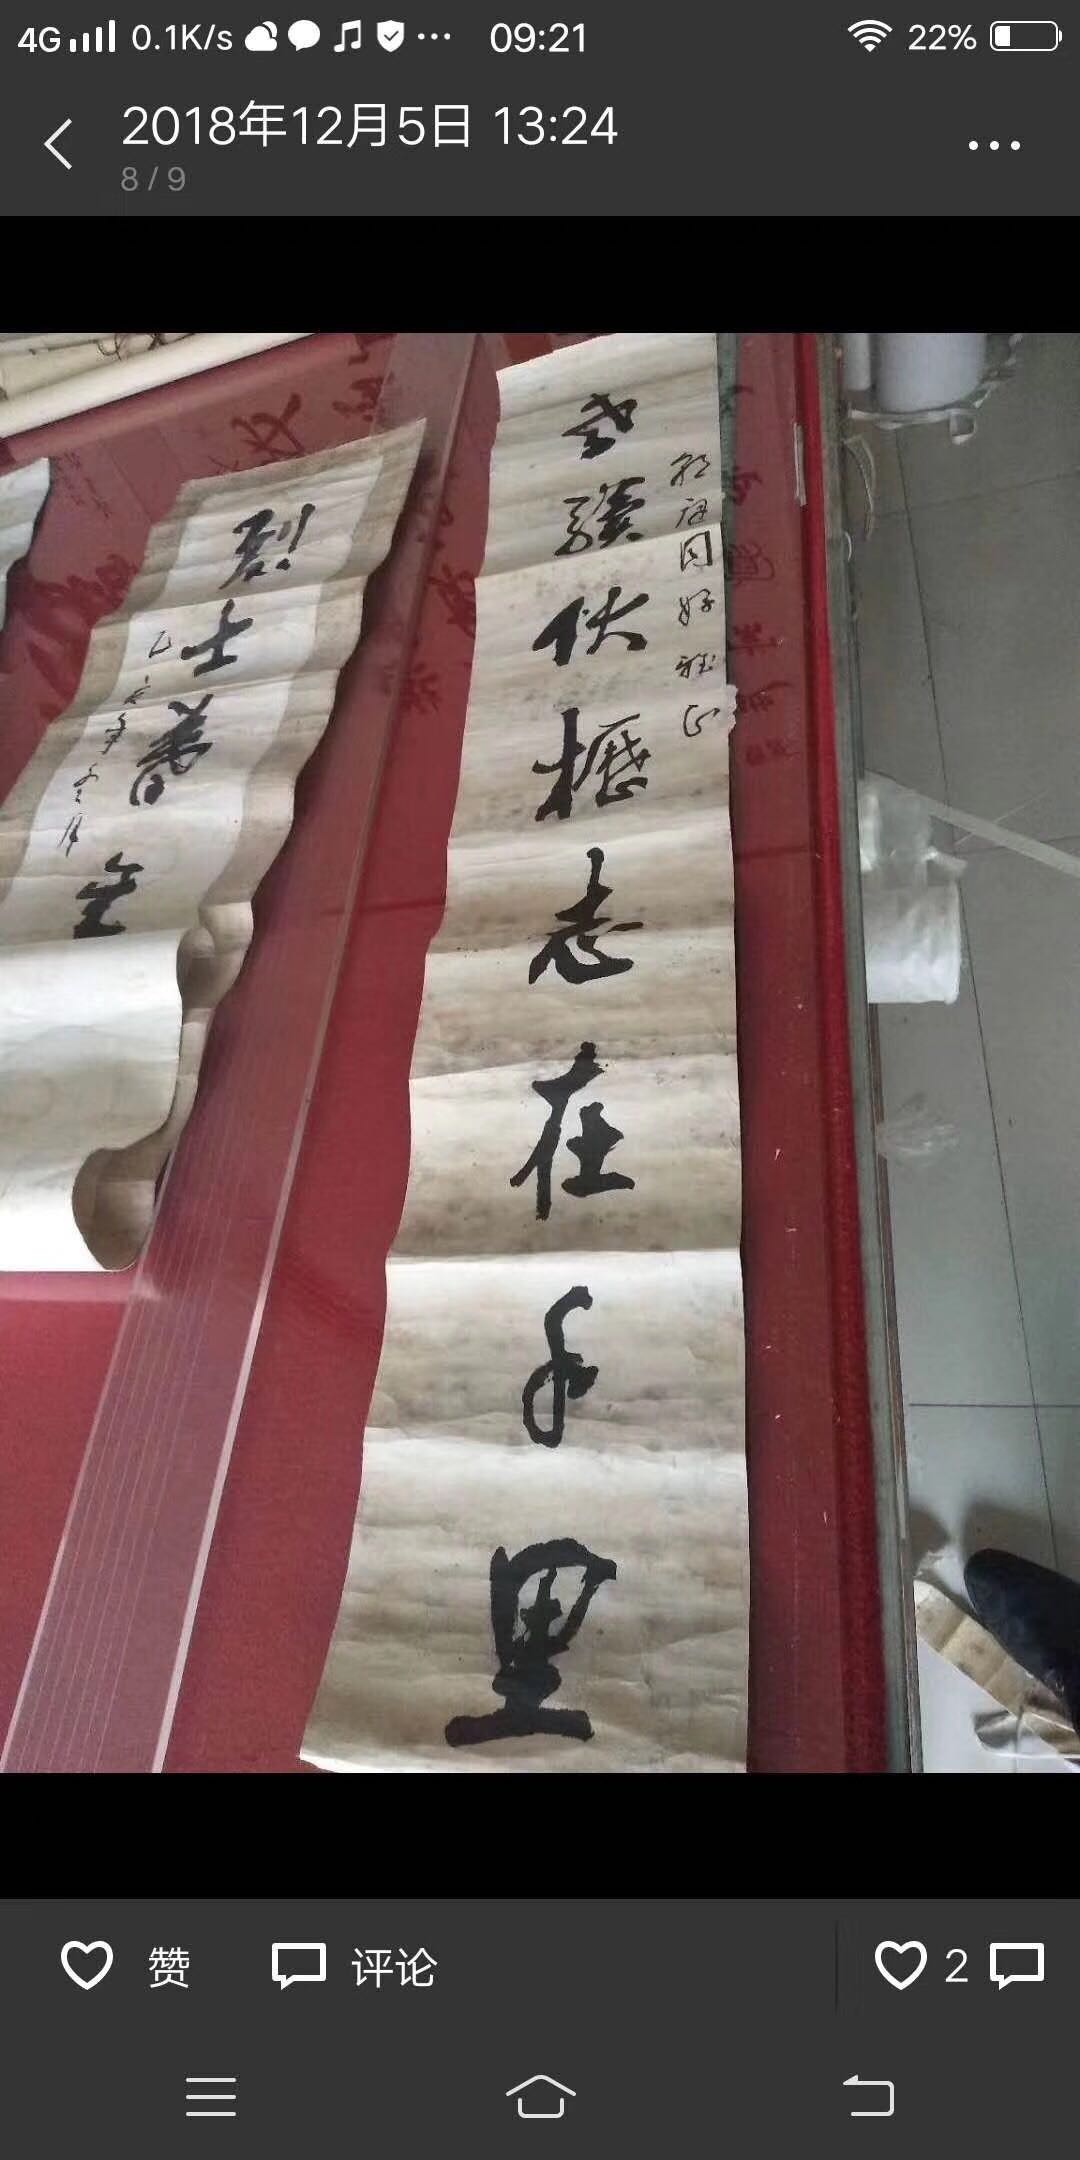 4G 0.1K/s 09:21 22%
2018年12月5日 13:24
8 / 9
老驥伏櫪志在千里
同好雅正
烈士暮年
赞
评论
2